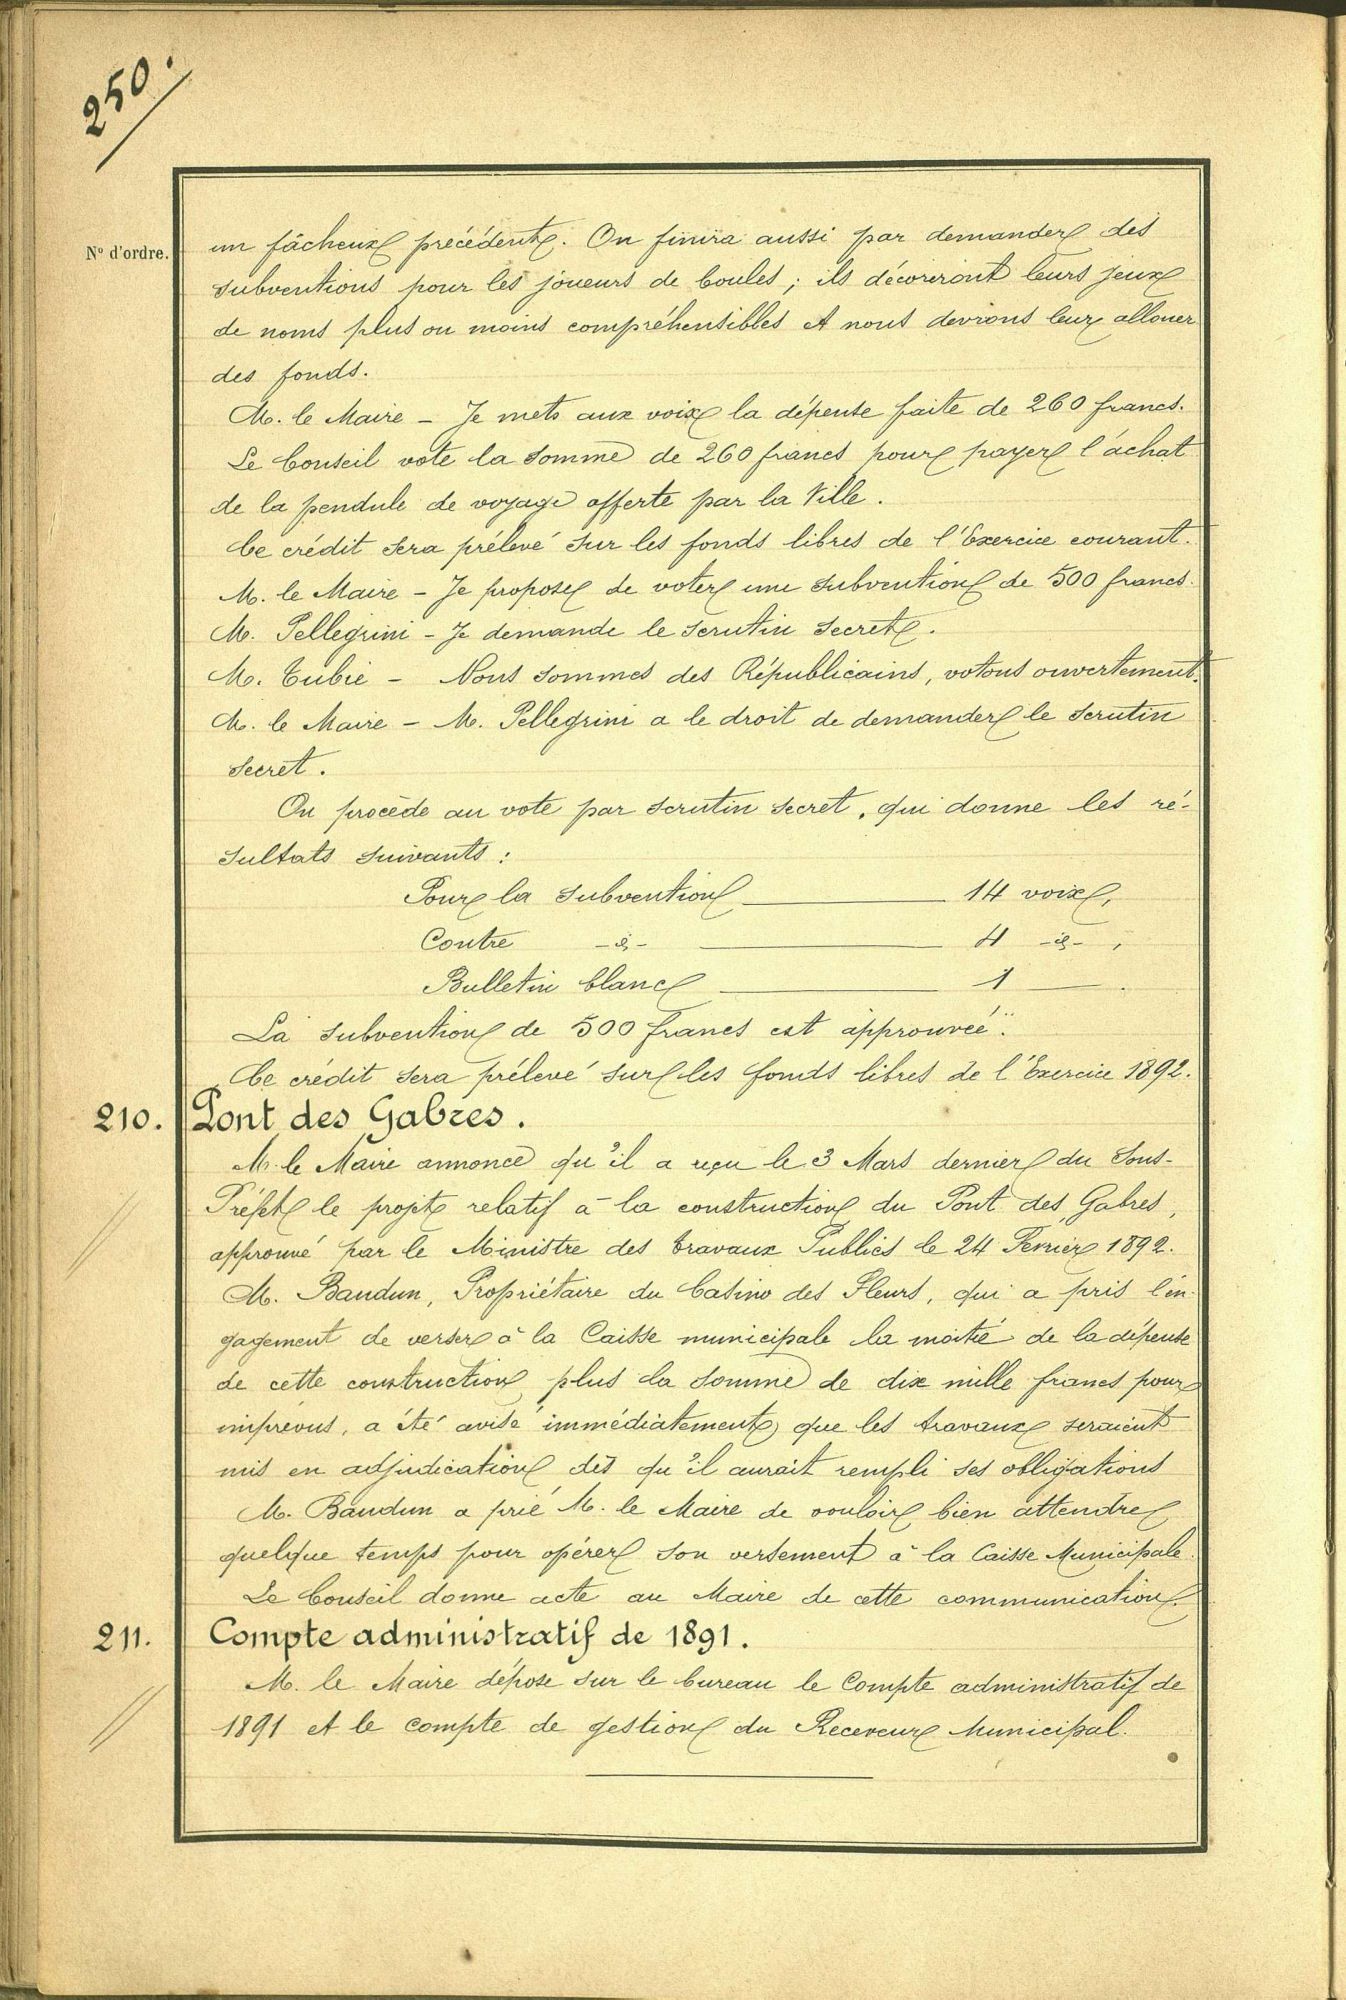 250.
N° d'ordre.
un fâcheux précédent. On finira aussi par demander des
subventions pour les joueurs de boules ; ils décoreront leurs jeux
de noms plus ou moins compréhensibles et nous devrons leur allouer
des fonds.
M. le Maire - Je mets aux voix la dépense faite de 260 francs.
Le Conseil vote la somme de 260 francs pour payer l'achat
de la pendule de voyage offerte par la Ville.
Ce crédit sera prélevé sur les fonds libres de l'Exercice courant.
M. le Maire - Je propose de voter une subvention de 500 francs.
M. Pellegrini - Je demande le scrutin secret.
M. Cubié - Nous sommes des Républicains, votons ouvertement.
M. le Maire - M. Pellegrini a le droit de demander le scrutin
secret.
On procède au vote par scrutin secret, qui donne les ré-
sultats suivants :
Pour la subvention 14 voix,
Contre -id- 4 -id- ,
Bulletin blanc 1 .
La subvention de 500 francs est approuvée.
Ce crédit sera prélevé sur les fonds libres de l'Exercice 1892.
210. Pont des Gabres.
M. le Maire annonce qu'il a reçu le 3 Mars dernier du Sous-
Préfet le projet relatif à la construction du Pont des Gabres,
approuvé par le Ministre des travaux Publics le 24 Février 1892.
M. Baudun, Propriétaire du Casino des Fleurs, qui a pris l'en-
gagement de verser à la Caisse municipale la moitié de la dépense
de cette construction, plus la somme de dix mille francs pour
imprévus, a été avisé immédiatement que les travaux seraient
mis en adjudication dès qu'il aurait rempli ses obligations
M. Baudun a prié M. le Maire de vouloir bien attendre
quelque temps pour opérer son versement à la Caisse Municipale.
Le Conseil donne acte au Maire de cette communication.
211. Compte administratif de 1891.
M. le Maire dépose sur le bureau le Compte administratif de
1891 et le compte de gestion du Receveur Municipal.